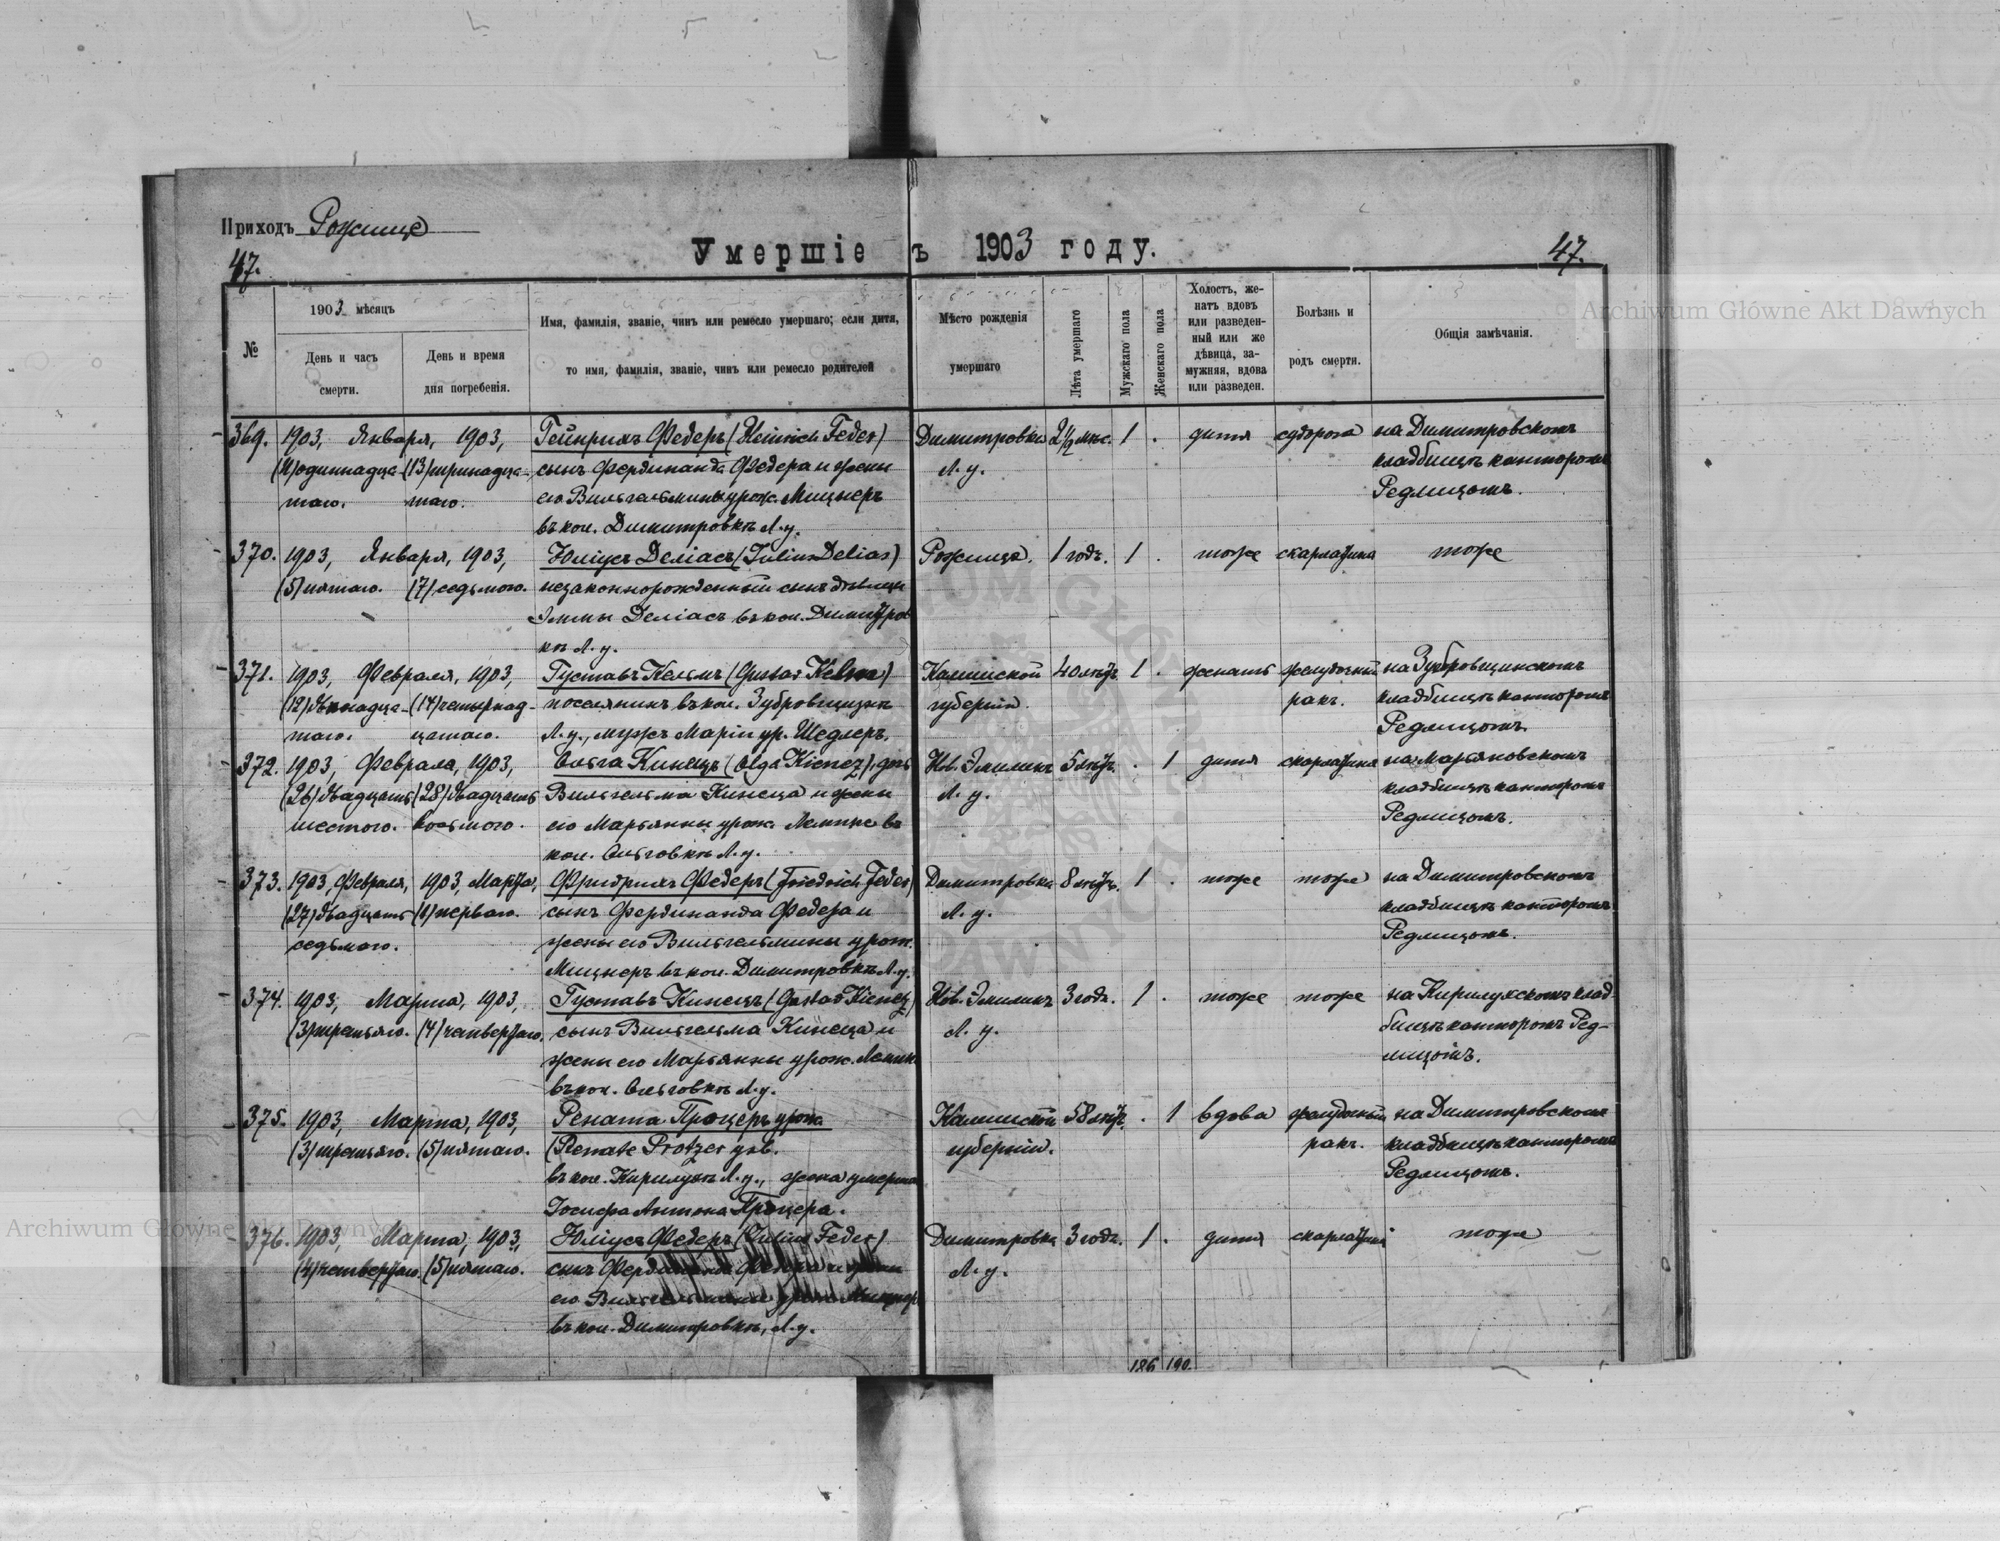 Приходъ Рожище
47.
Умершіе въ 1903 году.
47.
№
1903 мѣсяцъ
День и часъ смерти.
День и время дня погребенія.
Имя, фамилія, званіе, чинъ или ремесло умершаго; если дитя,
то имя, фамилія, званіе, чинъ или ремесло родителей
Мѣсто рожденія
умершаго
Лѣта умершаго
Мужскаго пола
Женскаго пола
Холостъ, же-
натъ вдовъ
или разведен-
ный или же
дѣвица, за-
мужняя, вдова
или разведен.
Болѣзнь и
родъ смерти.
Общія замѣчанія.
Archiwum Główne Akt Dawnych
369. 1903, Января, 1903, Гейнрихъ Федеръ (Heinrich Feder) Димитровка 2½ мѣс. 1 . дитя судорога на Димитровскомъ
(11) одиннадца- (13) тринадца- сынъ Фердинанда Федера и жены Л. у. кладбищѣ канторомъ
таго. таго. его Вильгельмины урож. Мицнеръ Редлицомъ.
въ кол. Димитровкѣ Л. у.
370. 1903, Января, 1903, Юліусъ Деліасъ (Julius Delias) Рожище. 1 годъ. 1 . тоже скарлатина тоже
(5) пятаго. (7) седьмого. незаконнорожденный сынъ дѣвицы
Эммы Деліасъ въ кол. Димитров
кѣ Л. у.
371. 1903, Февраля, 1903, Густавъ Кельмъ (Gustav Kelm) Калишской 40 лѣтъ. 1 . женатъ желудочный на Зубровщинскомъ
(12) двѣнадца- (14) четырнад- поселянинъ въ кол. Зубровщинѣ губерніи. ракъ. кладбищѣ канторомъ
таго. цатаго. Л. у., мужъ Маріи ур. Шедлеръ. Редлицомъ.
372. 1903, Февраля, 1903, Ольга Кинецъ (Olga Kienez), дочь Нов. Эмилинъ 5 лѣтъ. . 1 дитя скарлатина на Марьяновскомъ
(26) двадцать (28) двадцать Вильгельма Кинеца и жены Л. у. кладбищѣ канторомъ
шестого. восьмого. его Марьянны урож. Лемпке въ Редлицомъ.
кол. Ольговкѣ Л. у.
373. 1903, Февраля, 1903, Марта, Фридрихъ Федеръ (Friedrich Feder) Димитровка 8 лѣтъ. 1 . тоже тоже на Димитровскомъ
(27) двадцать (1) перваго. сынъ Фердинанда Федера и Л. у. кладбищѣ канторомъ
седьмого. жены его Вильгельмины урож. Редлицомъ.
Мицнеръ въ кол. Димитровкѣ Л. у.
374. 1903, Марта, 1903, Густавъ Кинецъ (Gustav Kienez) Нов. Эмилинъ 3 годъ. 1 . тоже тоже на Кирилухскомъ клад-
(3) третьяго. (4) четвертаго. сынъ Вильгельма Кинеца и Л. у. бищѣ канторомъ Ред-
жены его Марьянны урож. лицомъ.
въ кол. Ольговкѣ Л. у.
375. 1903, Марта, 1903, Рената Процеръ урож. Калишской 58 лѣтъ. . 1 вдова желудочный на Димитровскомъ
(3) третьяго. (5) пятаго. (Renate Protzer губерніи. ракъ. кладбищѣ канторомъ
въ кол. Л. у., жена умерша Редлицомъ.
Іосифа Антона Процера.
376. 1903, Марта, 1903, Юліусъ Федеръ (Julius Feder) Димитровка 3 годъ. 1 . дитя скарлатина тоже
(4) четвертаго. (5) пятаго. сынъ Фердинанда Федера и жены Л. у.
его Вильгельмины урож. Мицнеръ
въ кол. Димитровкѣ, Л. у.
186 190.
Archiwum Główne Akt Dawnych